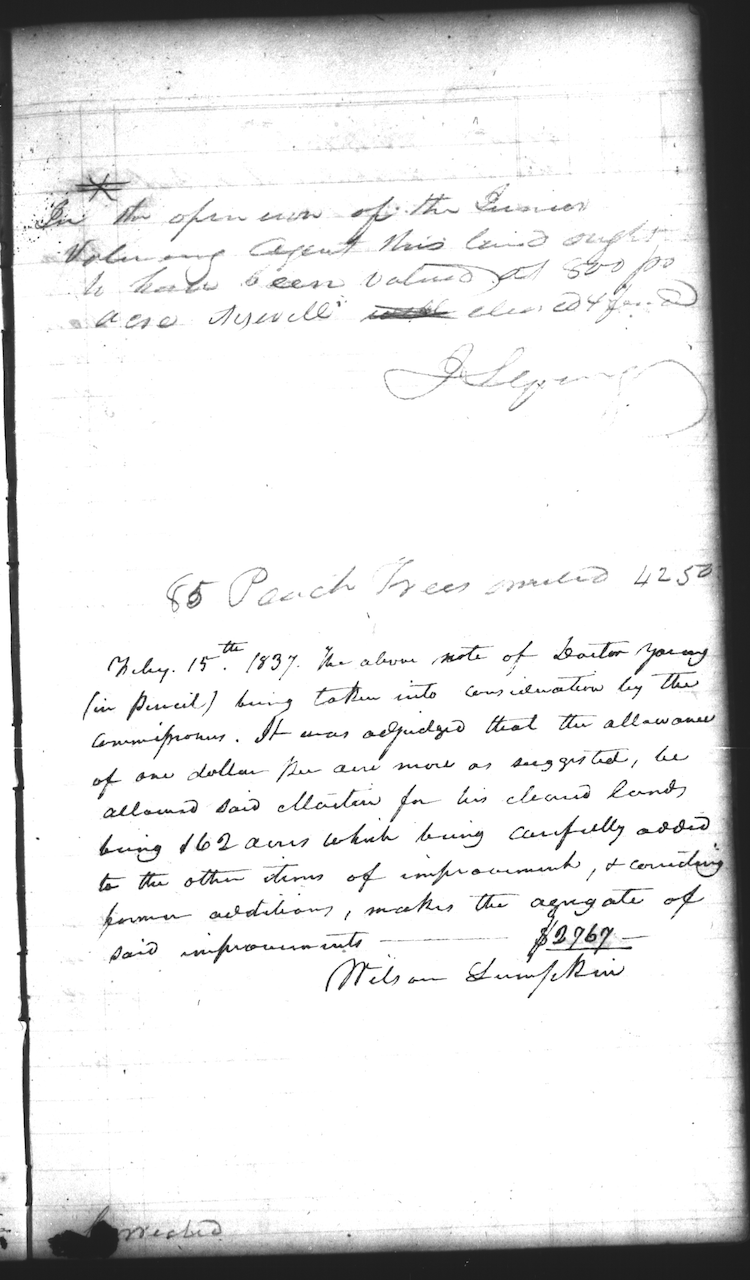 In the openion of the Junior
Valuing Agent this land ought
to have been valued at 800 pr
acre is well cleared & fenced
J S Young
85 Peach Trees omited 42 50
Feby. 15th. 1837. The above note of Doctor Young
(in Pencil) being taken into consideration by the
Commissioners. It was adjudged that the allowance
of one dollar per acre more as suggested, be
allowed said Martin for his cleared lands
being 162 acres which being carefully added
to the other items of improvement, & correcting
former additions, makes the agregate of
said improvements $2767
Wilson Lumpkin
Corrected